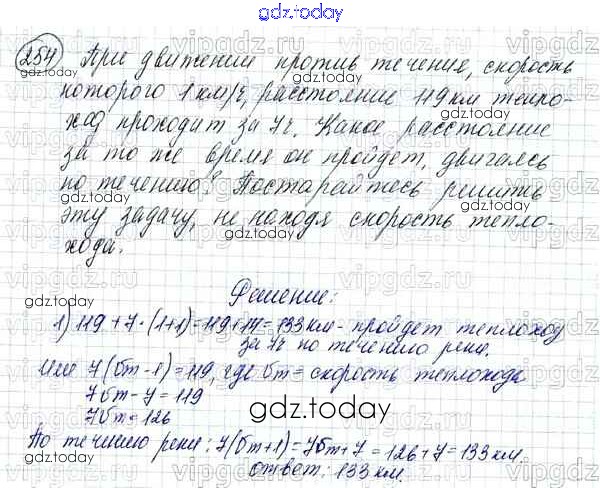 gdz.today
254 При движении против течения, скорость
которого 1 км/ч, расстояние 119 км тепло-
ход проходит за 7ч. Какое расстояние
за то же время он пройдет, двигаясь
по течению? Постарайтесь решить
эту задачу, не находя скорость тепло-
хода.
Решение:
1) 119 + 7 · (1+1) = 119 + 14 = 133 км - пройдет теплоход
за 7ч по течению реки.
Или 7(Vт - 1) = 119, где Vт = скорость теплохода
7Vт - 7 = 119
7Vт = 126
По течению реки: 7(Vт+1) = 7Vт + 7 = 126 + 7 = 133 км.
ответ: 133 км.
gdz.today
vipgdz.ru